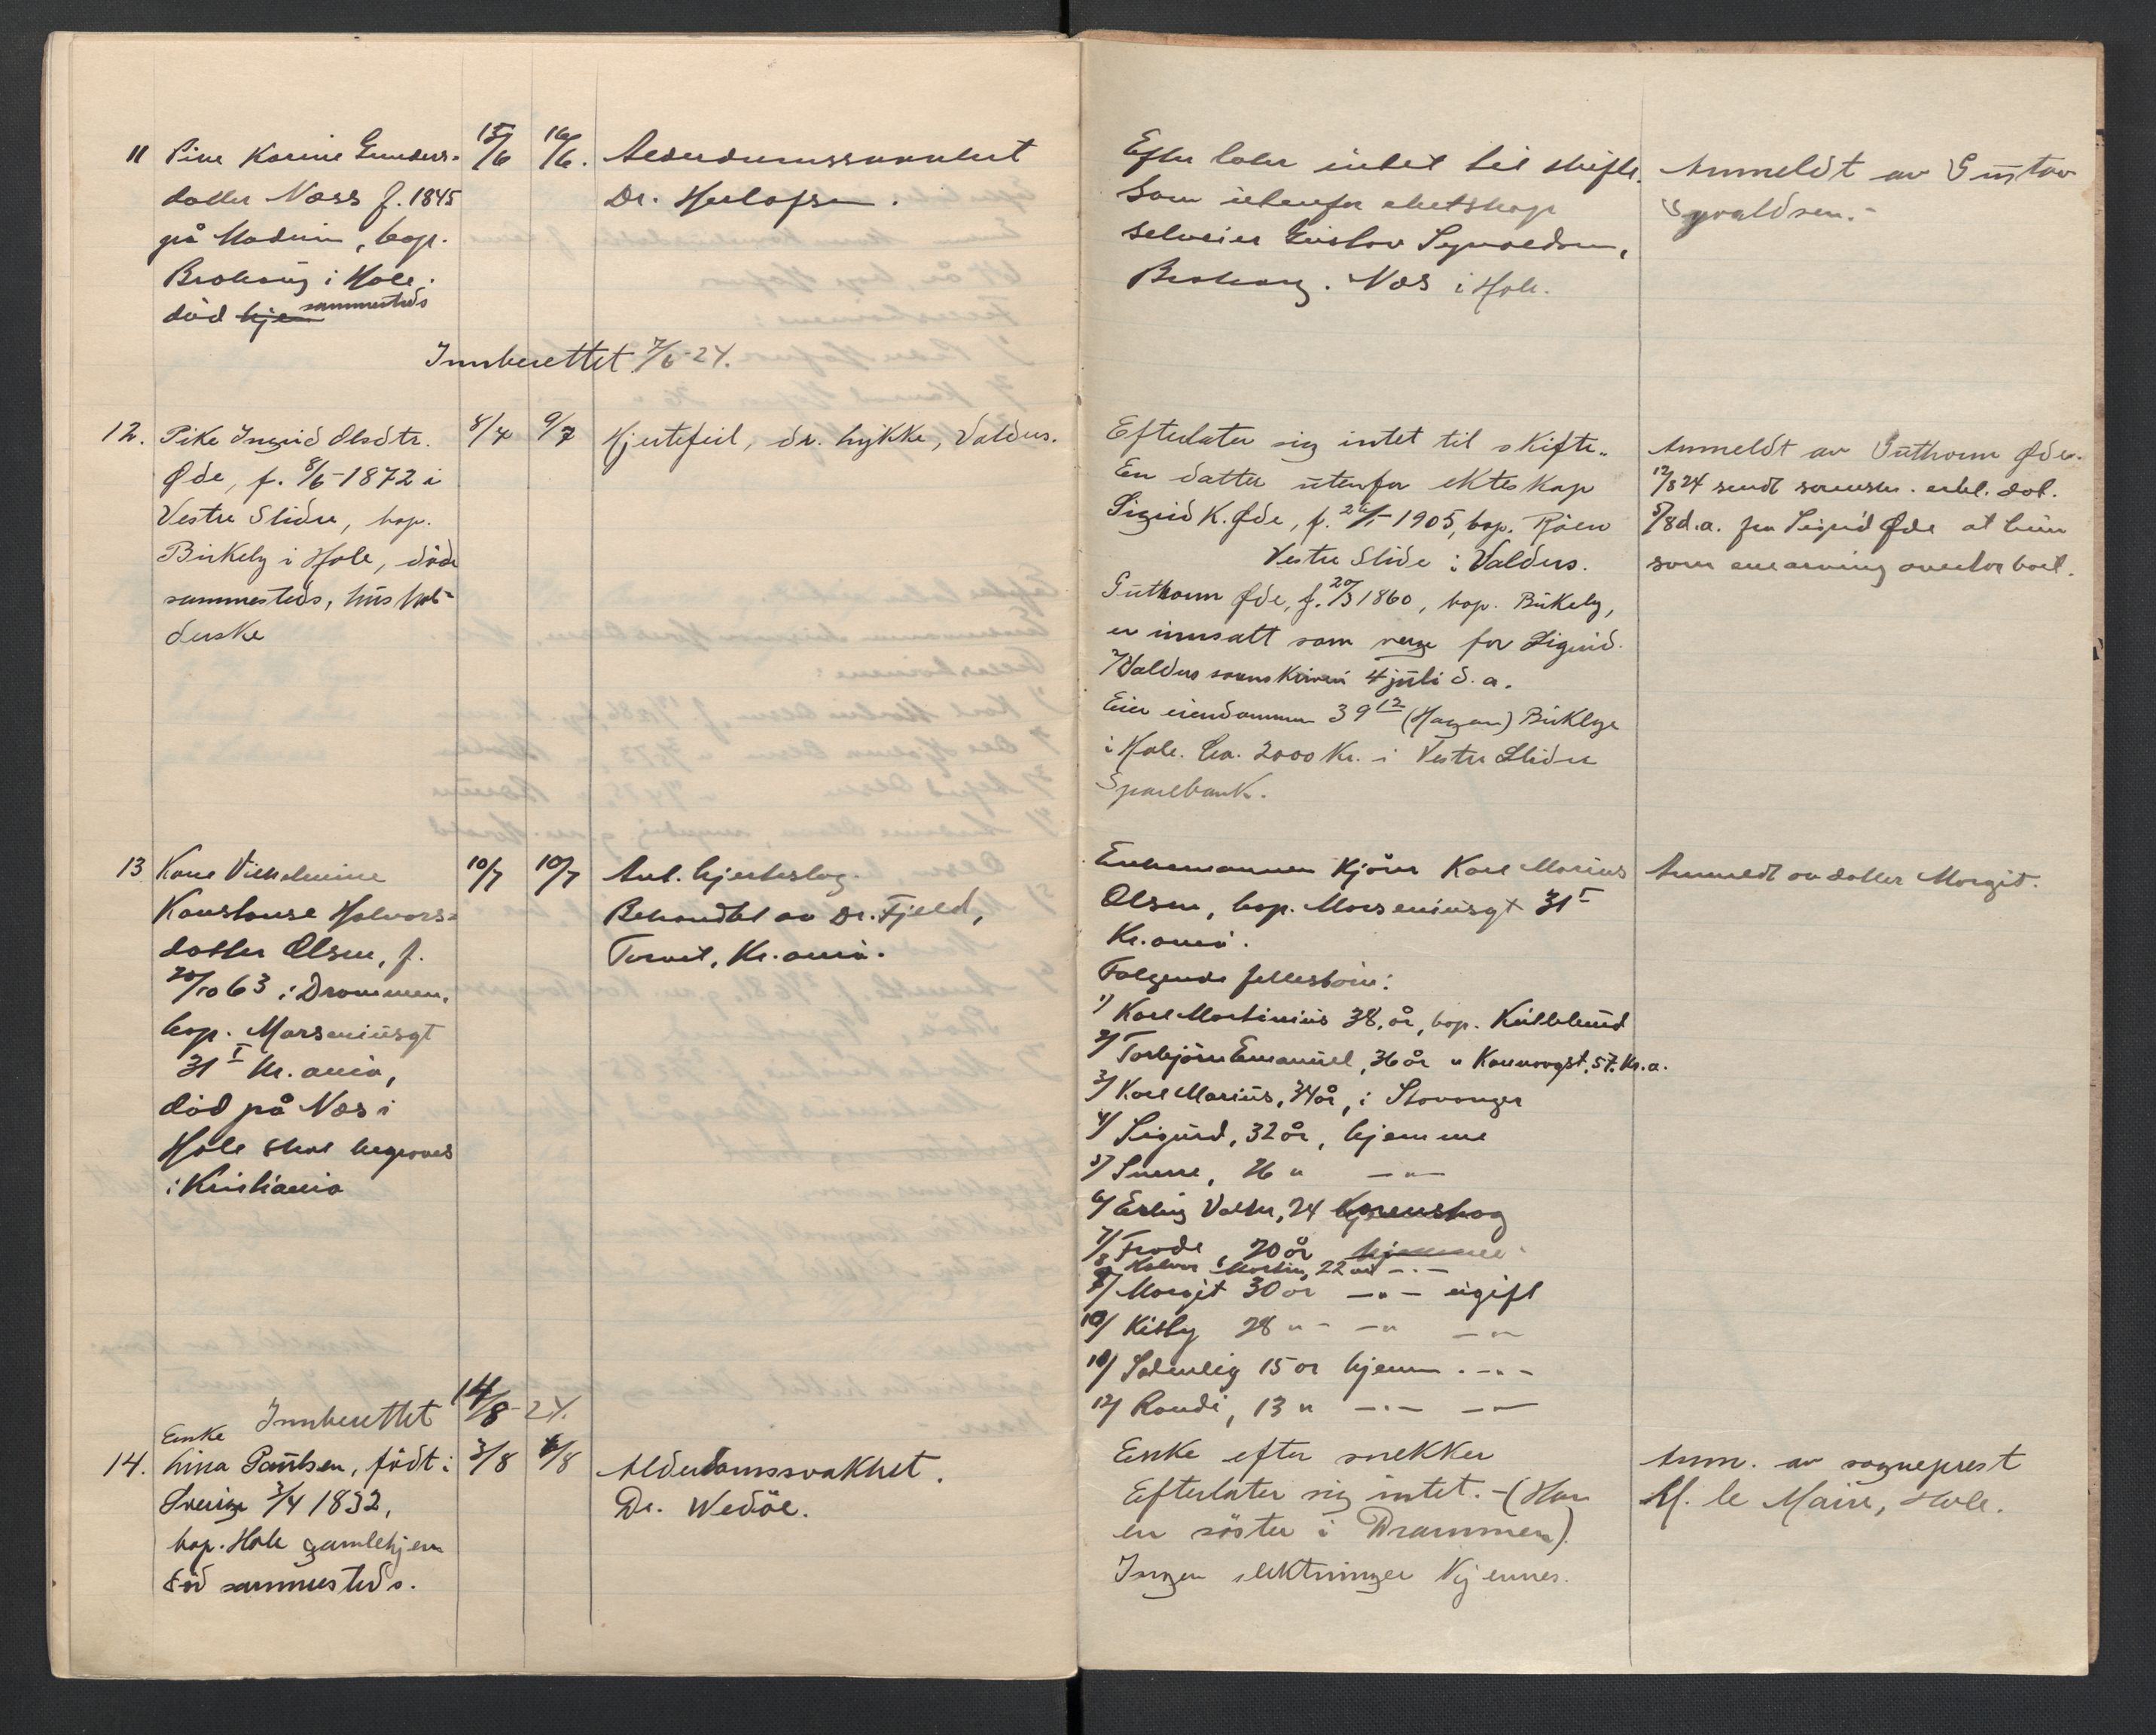 11 Pike Karine Gunders-
datter Næss f. 1845
på Modum, bop.
i Hole.
död hje sammesteds
15/6 16/6.
Alderdomssvakhet
Dr. Herlofsen.
Efterlater intet til skifte.
Sönn utenfor ektskap
selveier Gustav Syvaldsen,
Næs i Hole.
Anmeldt av Gustav
Syvaldsen.-
Innberettet 7/6-24.
12. Pike Ingrid Olsdtr.
Øde, f. 8/6-1872 i
Vestre Slidre, bop.
Birkely i Hole, död
sammesteds, hushol-
derske
8/7 9/7
Hjertefeil, dr. Lykke, Valdres.
Efterlater sig intet til skifte.
En datter utenfor ekteskap
Sigrid K. Øde, f. 1905, bop. Röen
Vestre Slidre i Valdres.
Guthorm Øde, f. 20/3 1860, bop. Birkely,
er innsatt som verge for Sigrid.
Valdres 4 juli d. a.
Eier eiendommen 39 12 (Hagan) Birkelye
i Hole. Ca. 2000 Kr. i Vestre Slidre
Sparebank.
Anmeldt av Guthorm Øde.
12/8 24 sendt sorenskr. erkl. dat.
5/8 d.a. fra Sigrid Øde at hun
som enearving overtar boet.
13 Kone Vilhelmine
Konstanse Halvors-
datter Olsen, f.
20/10 63 i Drammen,
bop. Marseniusgt
31 I Kr.ania,
död på Næs i
Hole skal begraves
i Kristiania
10/7 10/7
Ant. hjerteslag.
Behandlet av Dr. Fjeld,
Torvet, Kr.ania.
Enkemannen Kjörer Karl Marius
Olsen, bop. Marseniusgt 31 I
Kr.ania.
Følgende fellesbarn:
1) Karl Martinius 38, år, bop.
2) Torbjörn Emanuel, 36 år " 57, Kr.a.
3) Karl Marius, 34 år, i Stavanger
4) Sigurd, 32 år, hjemme
5) Sverre, 26 " —"—
6) Erling Valter, 24
7) Frode, 20 år hjemme
8 Halvor Martin, 22 år —"—
9) Margit 30 år —"— ugift
10) Kitty 28 " —" —"
11) Solveig 15 år hjem. —"—
12) Randi, 13 " —"— —"—
Anmeldt av datter Margit.
Innberettet 14/8-24.
Enke
14. Lina Paulsen, född i
Sverige 3/4 1832,
bop. Hole gamlehjem
död sammesteds.
3/8 6/8
Alderdomssvakhet.
Dr. Wedöe.
Enke efter snekker
Efterlater sig intet. - (Har
en söster i Drammen).
Ingen slektninger kjennes.
Anm. av sogneprest
M. le Maire, Hole.